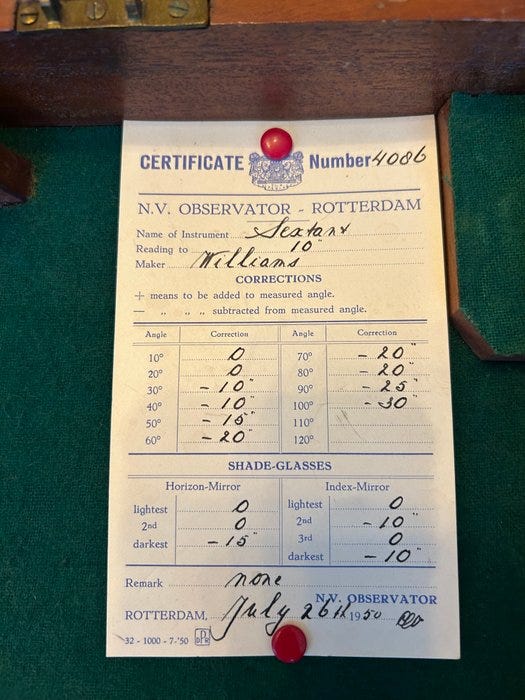 CERTIFICATE Number 4086
N.V. OBSERVATOR - ROTTERDAM
Name of Instrument Sextant
Reading to 10"
Maker Williams
CORRECTIONS
+ means to be added to measured angle.
— „ „ „ subtracted from measured angle.
Angle Correction Angle Correction
10° 0 70° - 20"
20° 0 80° - 20"
30° - 10" 90° - 25"
40° - 10" 100° - 30"
50° - 15" 110°
60° - 20" 120°
SHADE-GLASSES
Horizon-Mirror Index-Mirror
lightest 0 lightest 0
2nd 0 2nd - 10"
darkest - 15" 3rd 0
darkest - 10"
Remark none
N.V. OBSERVATOR
ROTTERDAM, July 26th 1950
32 - 1000 - 7-'50